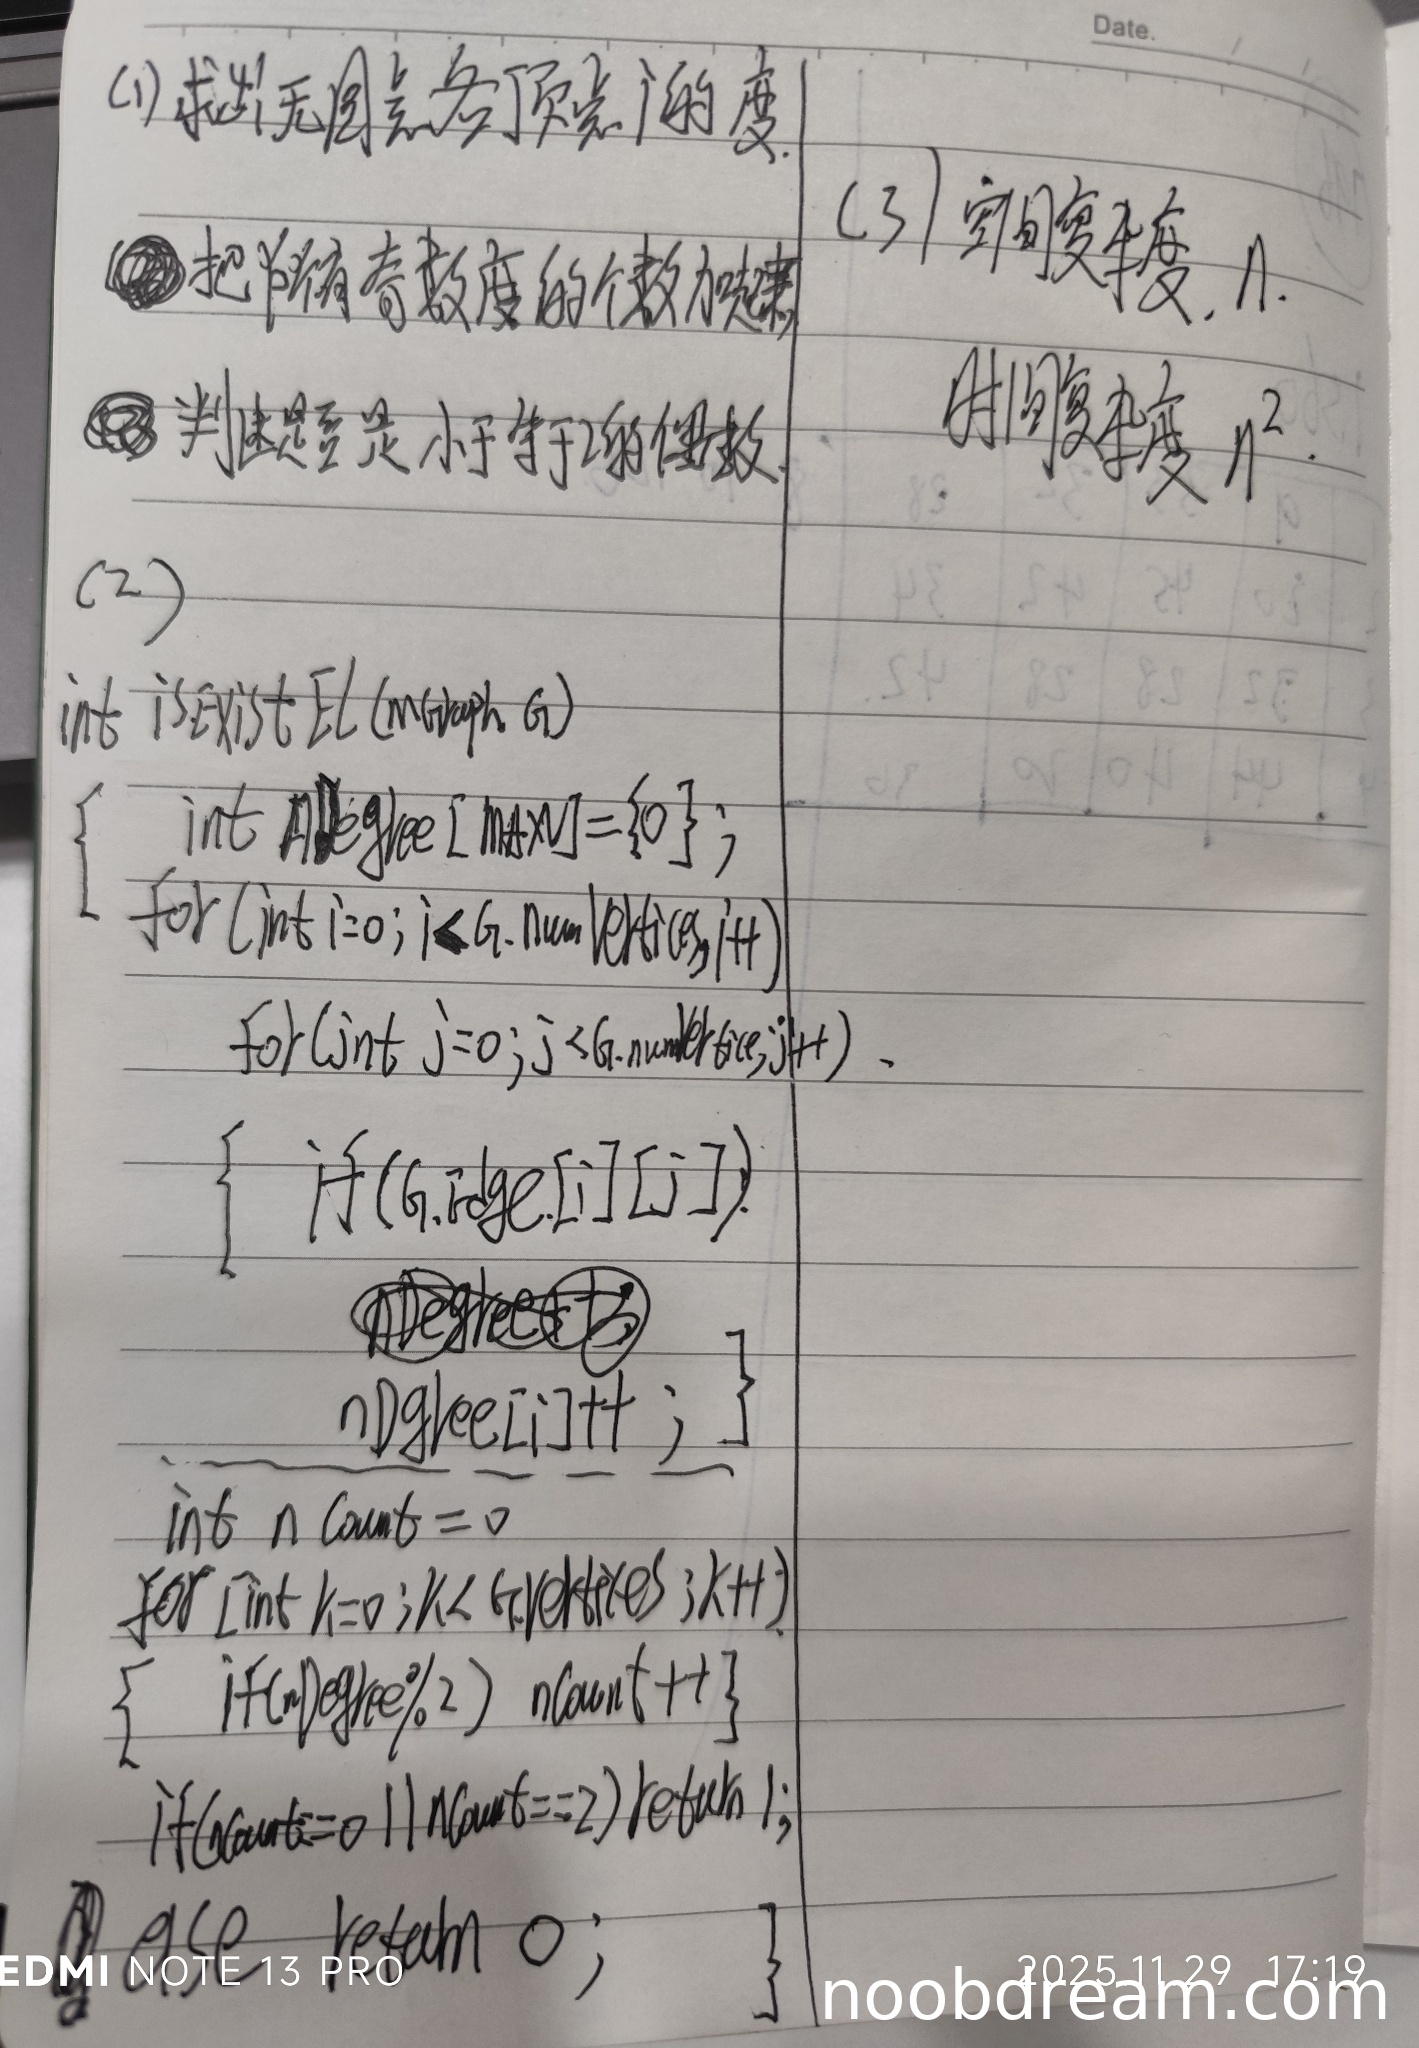 Date.
(1) 求出无图点各顶点i的度.
把所有奇数度的个数加起来
判断是否是小于等于2的偶数.
(2)
int isExistEL(mGraph G)
{ int nDegree[MAXV]={0};
for(int i=0;i<G.numVertices,i++)
for(int j=0;j<G.numVertices,j++).
{ if(G.Edge.[i][j])
nDgree[i]++; }
int nCount=0
for(int k=0;k<G.vertices;k++)
{ if(nDegree%2) nCount++}
if(nCount==0||nCount==2)return 1;
else return 0; }
(3) 空间复杂度. n.
时间复杂度 n².
EDMI NOTE 13 PRO
2025.11.29 17:19
noobdream.com